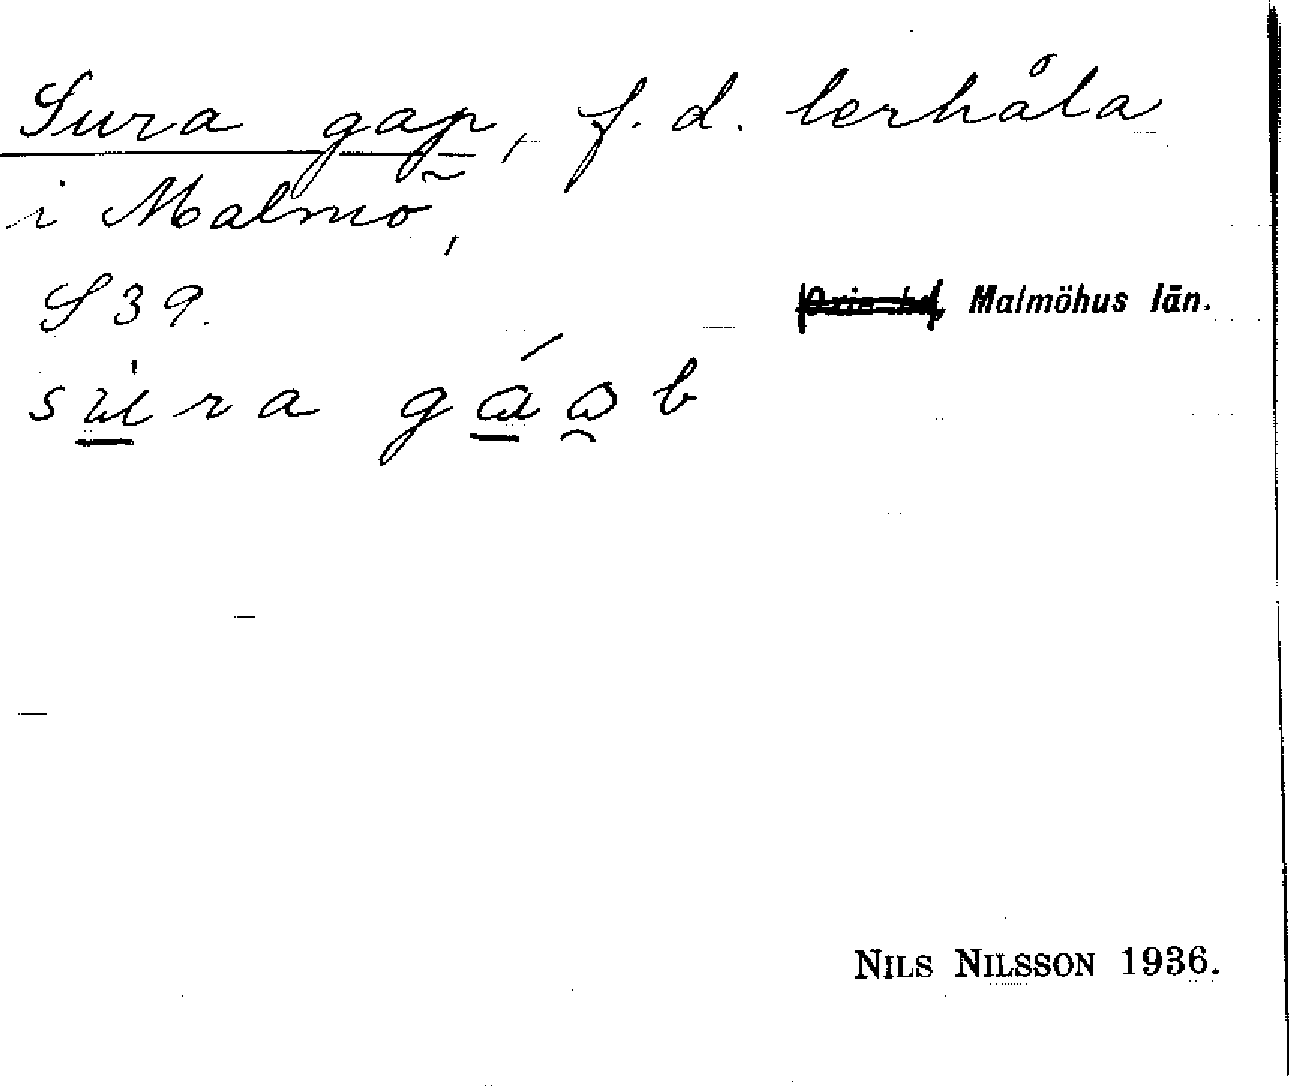 Sura gap, f. d. lerhåla
i Malmö,
S 39.
Oxie hd, Malmöhus län.
súra gáab
NILS NILSSON 1936.